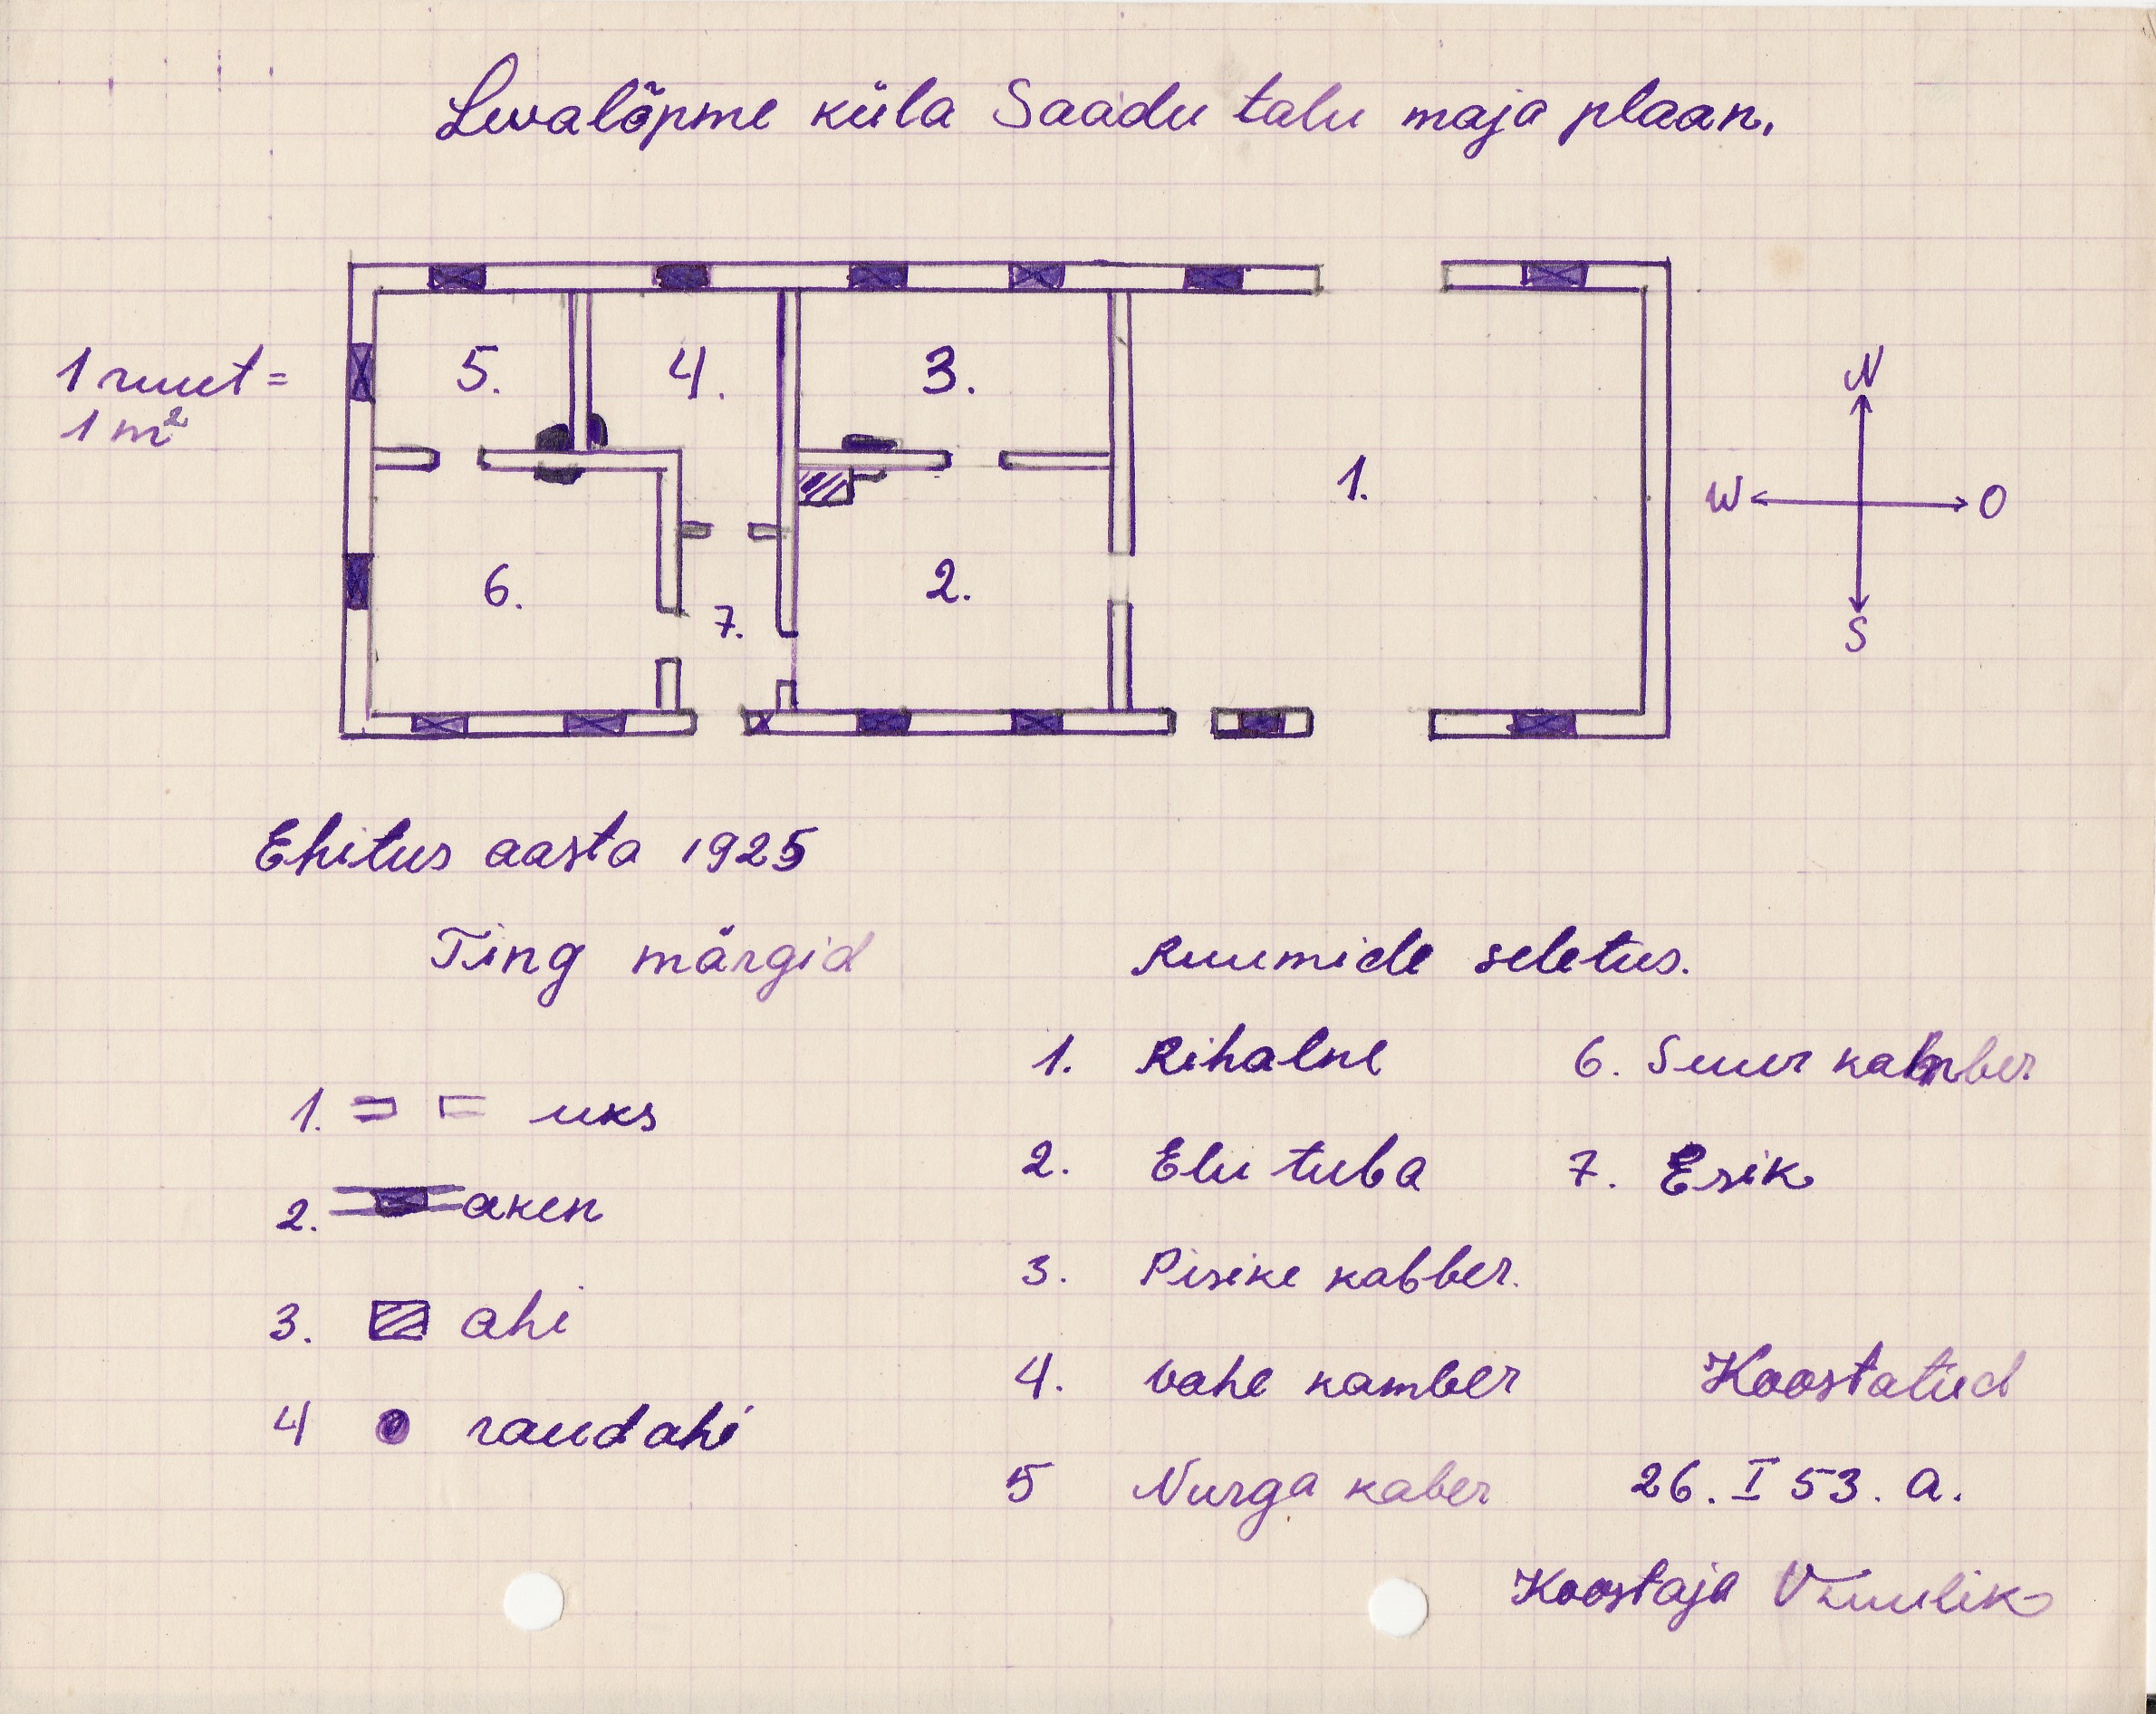 Levalõpme küla Saadu talu maja plaan.
1 ruut =
1 m²
5.
4.
3.
1.
6.
7.
2.
N
W
O
S
Ehitus aasta 1925
Ting märgid
1. uks
2. aken
3. ahi
4 raud ahi
Ruumide seletus.
1. Rihalne
2. Elu tuba
3. Pisike kabber.
4. vahe kamber
5 Nurga kaber
6. Suur kamber
7. Esik
Koostatud
26. I 53. a.
Koostaja